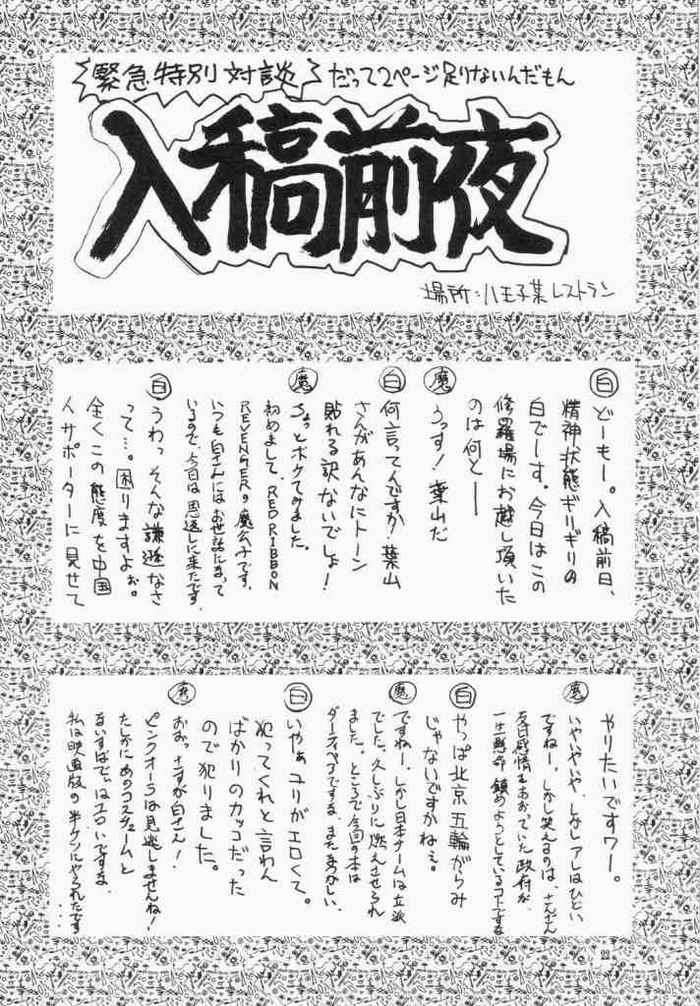 緊急特別対談
だって2ページ足りないんだもん
入稿前夜
場所:八王子某レストラン
白 どーもー。入稿前日、
精神状態ギリギリの
白でーす。今日はこの
修羅場にお越し頂いた
のは何と──
魔 うっす!葉山だ
白 何言ってんですか!葉山
さんがあんなにトーン
貼れる訳ないでしょ!
魔 ちょっとボケてみました。
初めまして、RED RIBBON
REVENGERの魔公子です。
いつも白さんにはお世話になって
いるので、今日は恩返しに来たです。
白 うわっ そんな謙遜なさ
って…。困りますよぉ。
全くこの態度を中国
人サポーターに見せて
やりたいですワー。
魔 いやいやいや、しかしアレはひどい
ですねー。しかし笑えるのは、さんざん
反日感情をあおっていた政府が
一生懸命 鎮めようとしているコトですな
白 やっぱ北京五輪がらみ
じゃないですかねぇ。
魔 ですねー。しかし日本チームは立派
でした。久しぶりに燃えさせられ
ました。ところで今回の本は
ダーティペアですな。またなつかしい
白 いやぁ ユリがエロくて。
犯ってくれと言わん
ばかりのカッコだった
ので犯りました。
魔 おおっ さすが白さん!
ピンクオーラは見逃しませんね!
たしかにあのコスチュームと
はエロいですな
私は映画版の半ケツにやられたです…
22